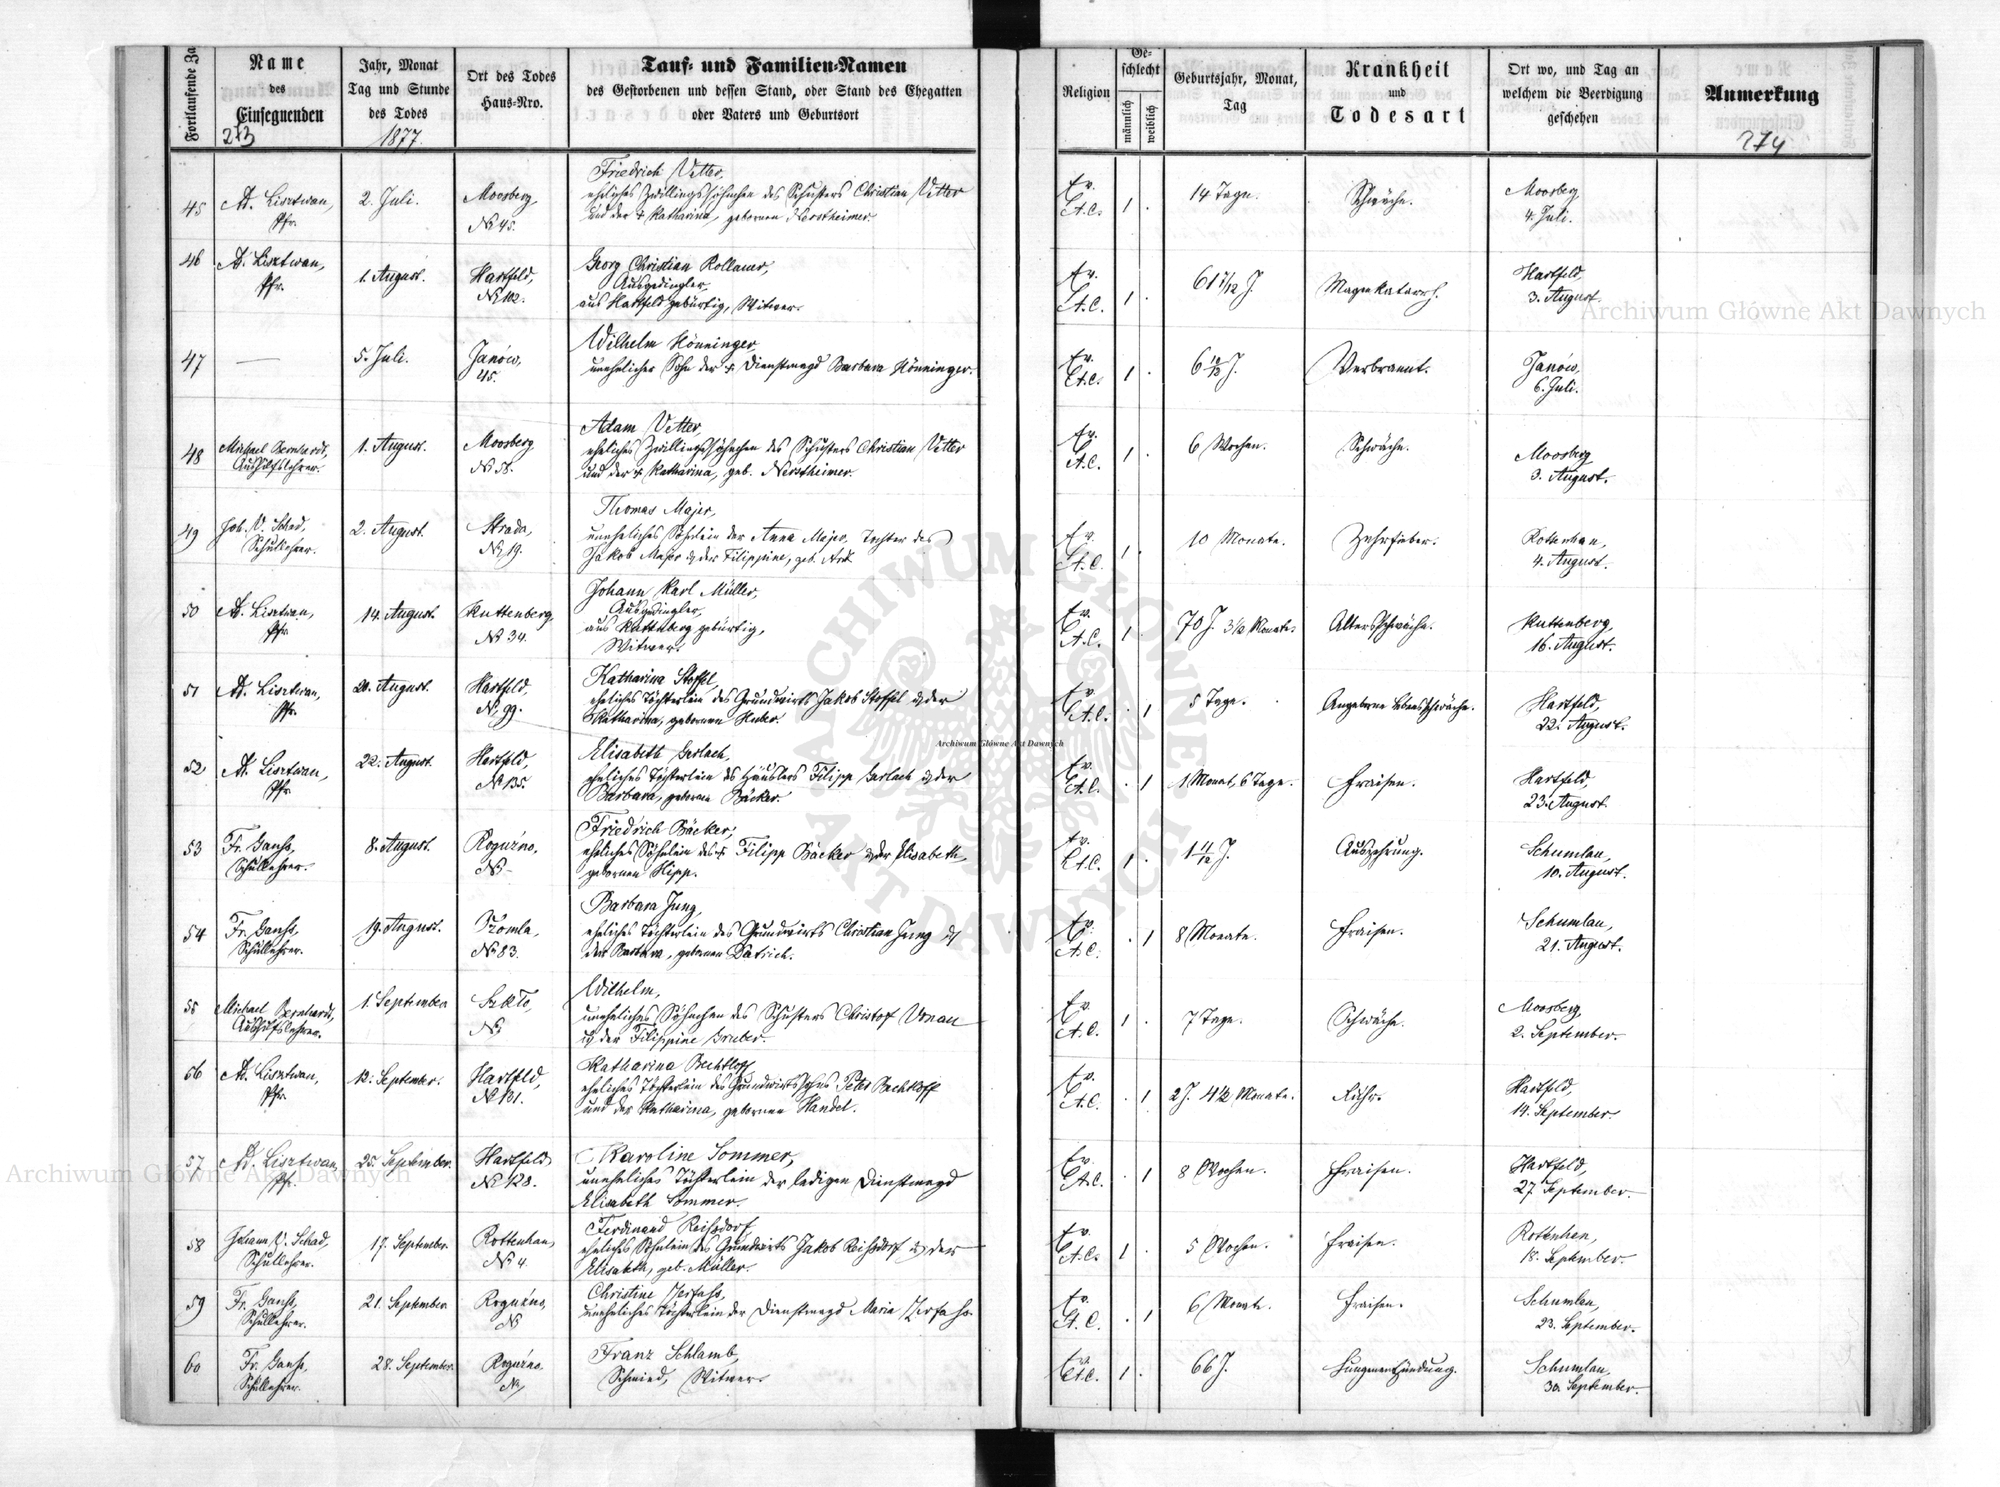 Fortlaufende Za
Name
des
Einsegnenden
273
Jahr, Monat
Tag und Stunde
des Todes
1877.
Ort des Todes
Haus-Nro.
Tauf- und Familien-Namen
des Gestorbenen und dessen Stand, oder Stand des Ehegatten
oder Vaters und Geburtsort
Religion
Ge-
schlecht
männlich
weiblich
Geburtsjahr, Monat,
Tag
Krankheit
und
Todesart
Ort wo, und Tag an
welchem die Beerdigung
geschehen
Anmerkung
274
45 Ad. Lisztwan, Pfr. 2. Juli. Moosberg, No 45.
Friedrich Vetter,
eheliches Zwillingssöhnchen des Schusters Christian Vetter
und der + Katharina, geborenen
Ev. A.C. 1 . 14 Tage. Schwäche. Moosberg, 4. Juli.
46 Ad. Lisztwan, Pfr. 1. August. Hartfeld, No 102.
Georg Christian Rollauer,
Ausgedingler,
aus Hartfeld gebürtig, Witwer.
Ev. A.C. 1 . J. Magenkatarrh. Hartfeld, 3. August.
47 — 5. Juli. Janów, 45.
Wilhelm Hönninger,
unehelicher Sohn der + Dienstmagd Barbara Hönninger.
Ev. A.C. 1 . J. Verbrannt. Janów, 6. Juli.
48 Michael Bernhardt, Aushilfslehrer. 1. August. Moosberg, No 58.
Adam Vetter,
eheliches Zwillingssöhnchen des Schusters Christian Vetter
und der + Katharina, geb.
Ev. A.C. 1 . 6 Wochen. Schwäche. Moosberg, 3. August.
49 Joh. V. Schad, Schullehrer. 2. August. Strada, No 19.
Thomas Majer,
uneheliches Söhnlein der Anna Majer, Tochter des
Jakob Majer & der Filippine, geb.
Ev. A.C. 1 . 10 Monate. Zehrfieber. Rottenhan, 4. August.
50 Ad. Lisztwan, Pfr. 14. August. Kuttenberg, No 34.
Johann Karl Müller,
Ausgedingler,
aus Kuttenberg gebürtig,
Witwer.
Ev. A.C. 1 . 70 J. 3 1/2 Monate. Altersschwäche. Kuttenberg, 16. August.
51 Ad. Lisztwan, Pfr. 20. August. Hartfeld, No 99.
Katharina Stoffel,
eheliches Töchterlein des Grundwirts Jakob Stoffel & der
Katharina, geborenen Huber.
Ev. A.C. . 1 5 Tage. Angeborne Lebensschwäche. Hartfeld, 22. August.
52 Ad. Lisztwan, Pfr. 22. August. Hartfeld, No 135.
Elisabeth Gerlach,
eheliches Töchterlein des Häuslers Filipp Gerlach & der
Barbara, geborene Bäcker.
Ev. A.C. . 1 1 Monat, 6 Tage. Fraisen. Hartfeld, 23. August.
53 Fr. Ganss, Schullehrer. 8. August. Roguźno, No -
Friedrich Bäcker,
eheliches Söhnlein des + Filipp Bäcker & der Elisabeth,
geborenen Hipp.
Ev. A.C. 1 . 1 11/12 J. Auszehrung. Schumlau, 10. August.
54 Fr. Ganss, Schullehrer. 19. August. Tzomla, No 83.
Barbara Jung,
eheliches Töchterlein des Grundwirts Christian Jung &
der Barbara, geborenen Datrich.
Ev. A.C. . 1 8 Monate. Fraisen. Schumlau, 21. August.
55 Michael Bernhardt, Aushilfslehrer. 1. September Szkło, No
Wilhelm,
uneheliches Söhnchen des Schusters Christof Vonau
& der Filippine Gruber.
Ev. A.C. 1 . 7 Tage. Schwäche. Moosberg, 2. September.
56 Ad. Lisztwan, Pfr. 13. September. Hartfeld, No 131.
Katharina Bechtloff,
eheliches Töchterlein des Grundwirtssohns Peter Bechtloff
und der Katharina, geborenen Handel.
Ev. A.C. . 1 2 J. 4 1/2 Monate. Ruhr. Hartfeld, 14. September.
57 Ad. Lisztwan, Pfr. 25. September. Hartfeld, No 128.
Karoline Sommer,
uneheliches Töchterlein der ledigen Dienstmagd
Elisabeth Sommer.
Ev. A.C. . 1 8 Wochen. Fraisen. Hartfeld, 27. September.
58 Johann V. Schad, Schullehrer. 17. September. Rottenhan, No 4.
Ferdinand Reissdorf,
eheliches Söhnlein des Grundwirts Jakob Reissdorf & der
Elisabeth, geb. Müller.
Ev. A.C. 1 . 5 Wochen. Fraisen. Rottenhan, 18. September.
59 Fr. Ganss, Schullehrer. 21. September Roguźno, No
Christine Zerfass,
uneheliches Töchterlein der Dienstmagd Maria Zerfass.
Ev. A.C. . 1 6 Monate. Fraisen. Schumlau, 23. September.
60 Fr. Ganss, Schullehrer. 28. September. Roguźno, No
Franz Schlamb,
Schmied, Witwer.
Ev. A.C. 1 . 66 J. Lungenentzündung. Schumlau, 30. September.
Archiwum Główne Akt Dawnych
ARCHIWUM GŁÓWNE
AKT DAWNYCH
Archiwum Główne Akt Dawnych
Archiwum Główne Akt Dawnych